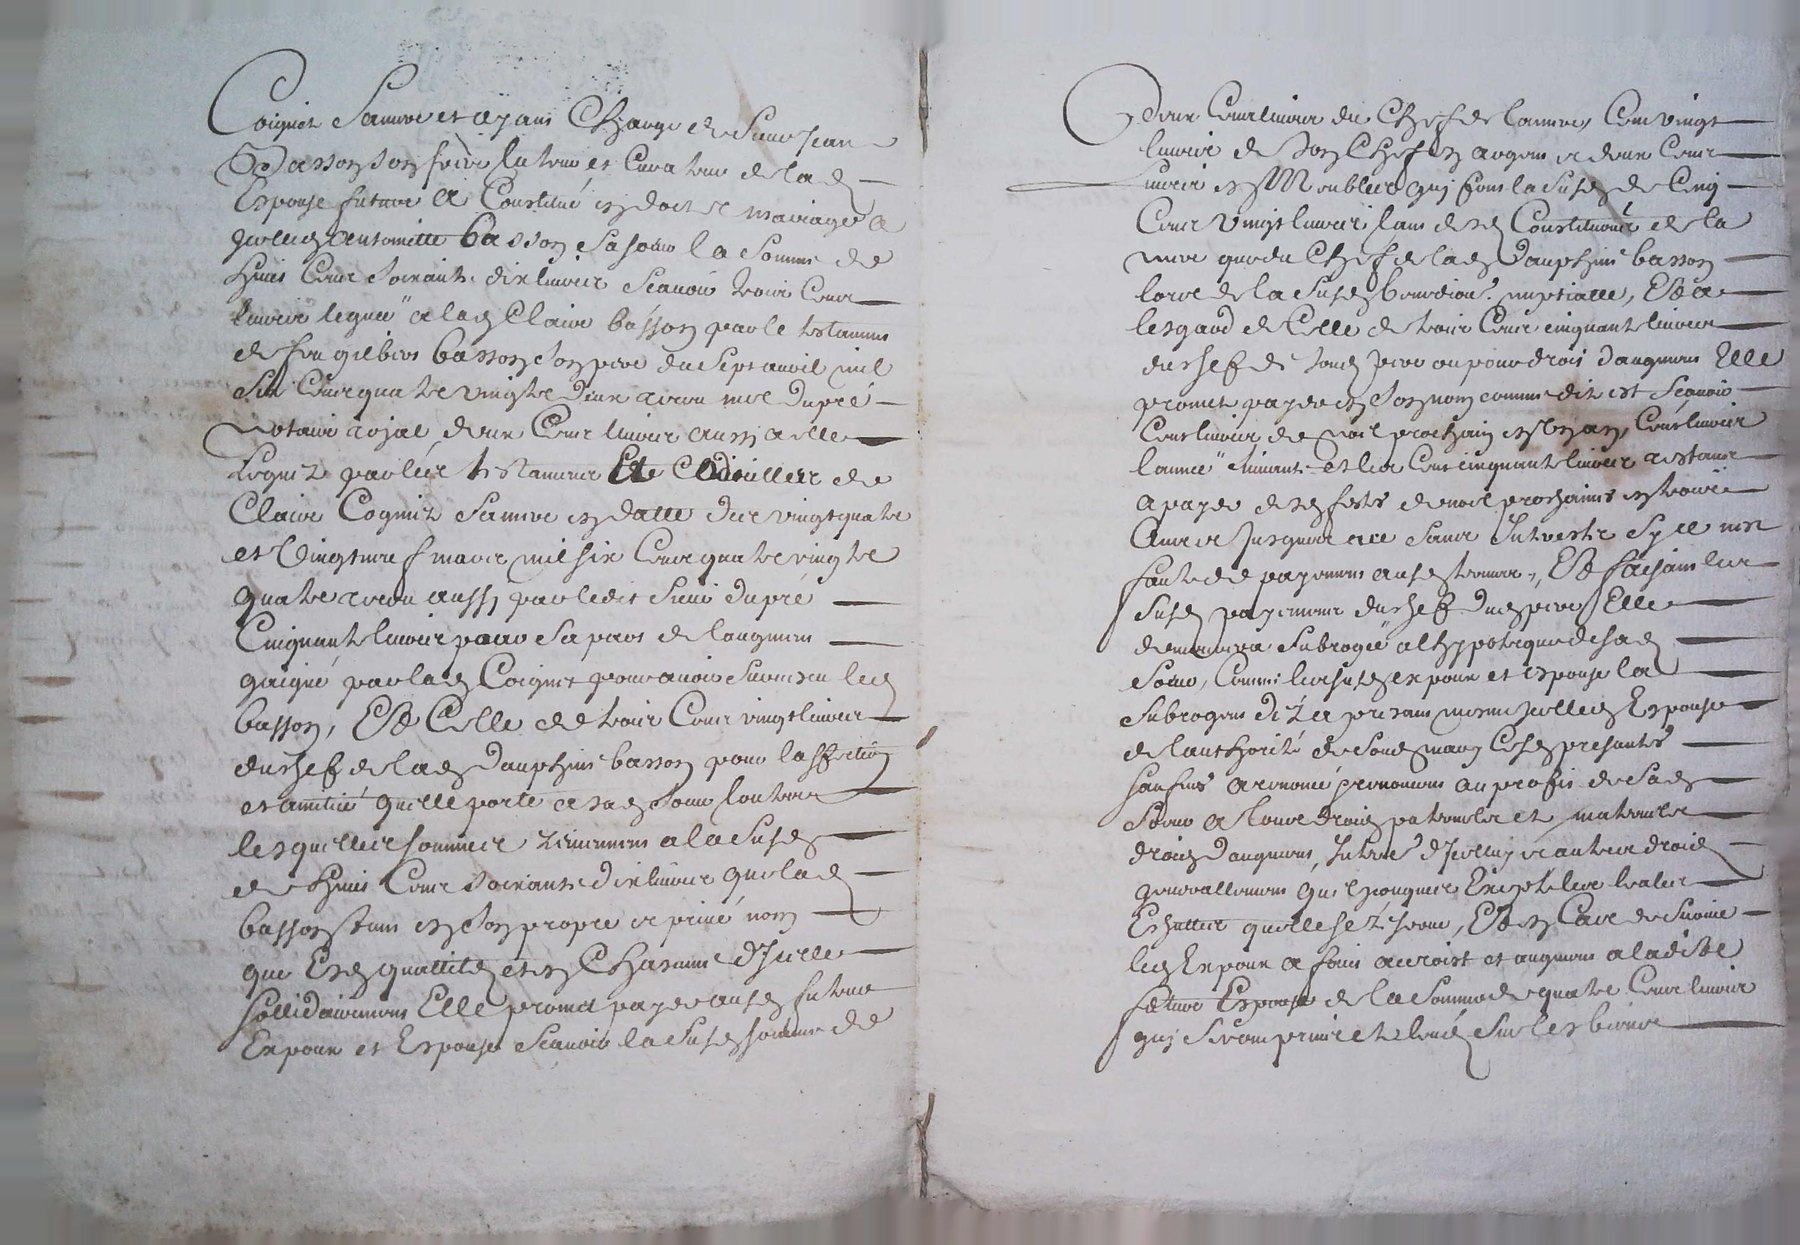 Coignet sa mere et ayant charge de sieur Jean
Basson son frere tuteur et curateur de lad
Espouse future a Constitué en dot et mariage a
Jcelle Antoinette basson sa soeur la somme de
huit Cent soixante dix livres scavoir trois Cent
livres leguée a lad Claire basson par le testament
de feu gilbert basson son pere du sept avril mil
six Cent quatre vingts deux receu me dupré
Notaire royal deux Cent livres aussi a elle
leguez par les testament et Codicilles de
Claire Cogniet sa mere en datte des vingt quatre
et vingt neuf mars mil six Cent quatre vingts
quatre receu aussy par ledit sieur dupré
Cinquante livres pour sa part de laugment
gaigné par lad Coignet pour avoir survescu led
basson, Et Celle de trois Cent vingt livres
du chef de lad dauphine basson pour laffection
et amitié quelle porte a sad soeur future
lesquelles sommes reviennent a la susd
de huit Cent soixante dix livres que lad
basson tant en son propre et privé nom
que Esd qualités et en Chascune dJcelles
sollidairement Elle promet payer ausd futurs
Expoux et Espouse scavoir la susd somme de
deux Cent livres du Chef de la mere Cent vingt
livres de son Chef en argent et deux Cent
livres en Meubles quy font la susd de Cinq
Cent vingt livres tant de sd Constitution de la
mere que du Chef de lad dauphine basson
lors de la susd benediction nuptialle, Et a
lesgard de Celle de trois Cent cinquante livres
du chef de sond pere ou pour droit daugment Elle
promet payer en son nom comme dit est scavoir
Cent livres de noel prochain en un an, Cent livres
lannée suivante et les Cent cinquante livres restant
a payer desd festes de noel prochaines en trois
Annees Jusques a ce sans Interests sy ce nest
faute de payement ausd termes, Et faisant les
susd payement du chef dud pere Elle
demeurera subrogée a lhypoteque de sad
soeur, Comme les susd expoux et espouse la
subrogent dez a present mesme Jcelle Espouse
de lauthorité de soud mary Cesd presentes
sauf renoncé et renoncent au profit de sad
soeur a tous droits paternels et maternels
droits daugment, Interest dJcelluy et autres droits
generallement quelconques Excepté les loyales
Eschuttes quelle se reserve, Et en Cas de survie
led Expoux a fait accroist et augment a ladite
future Espouse de la somme de quatre Cent livres
quy seront prins et levés sur les biens